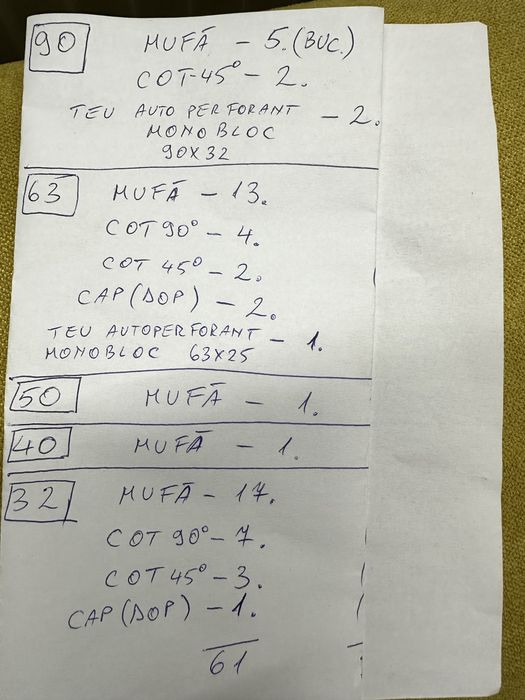 90 MUFĂ - 5. (BUC.)
COT-45° - 2.
TEU AUTO PERFORANT - 2.
MONOBLOC
90X32
63 MUFĂ - 13.
COT 90° - 4.
COT 45° - 2.
CAP (DOP) - 2.
TEU AUTOPERFORANT - 1.
MONOBLOC 63X25
50 MUFĂ - 1.
40 MUFĂ - 1.
32 MUFĂ - 17.
COT 90° - 7.
COT 45° - 3.
CAP (DOP) - 1.
61